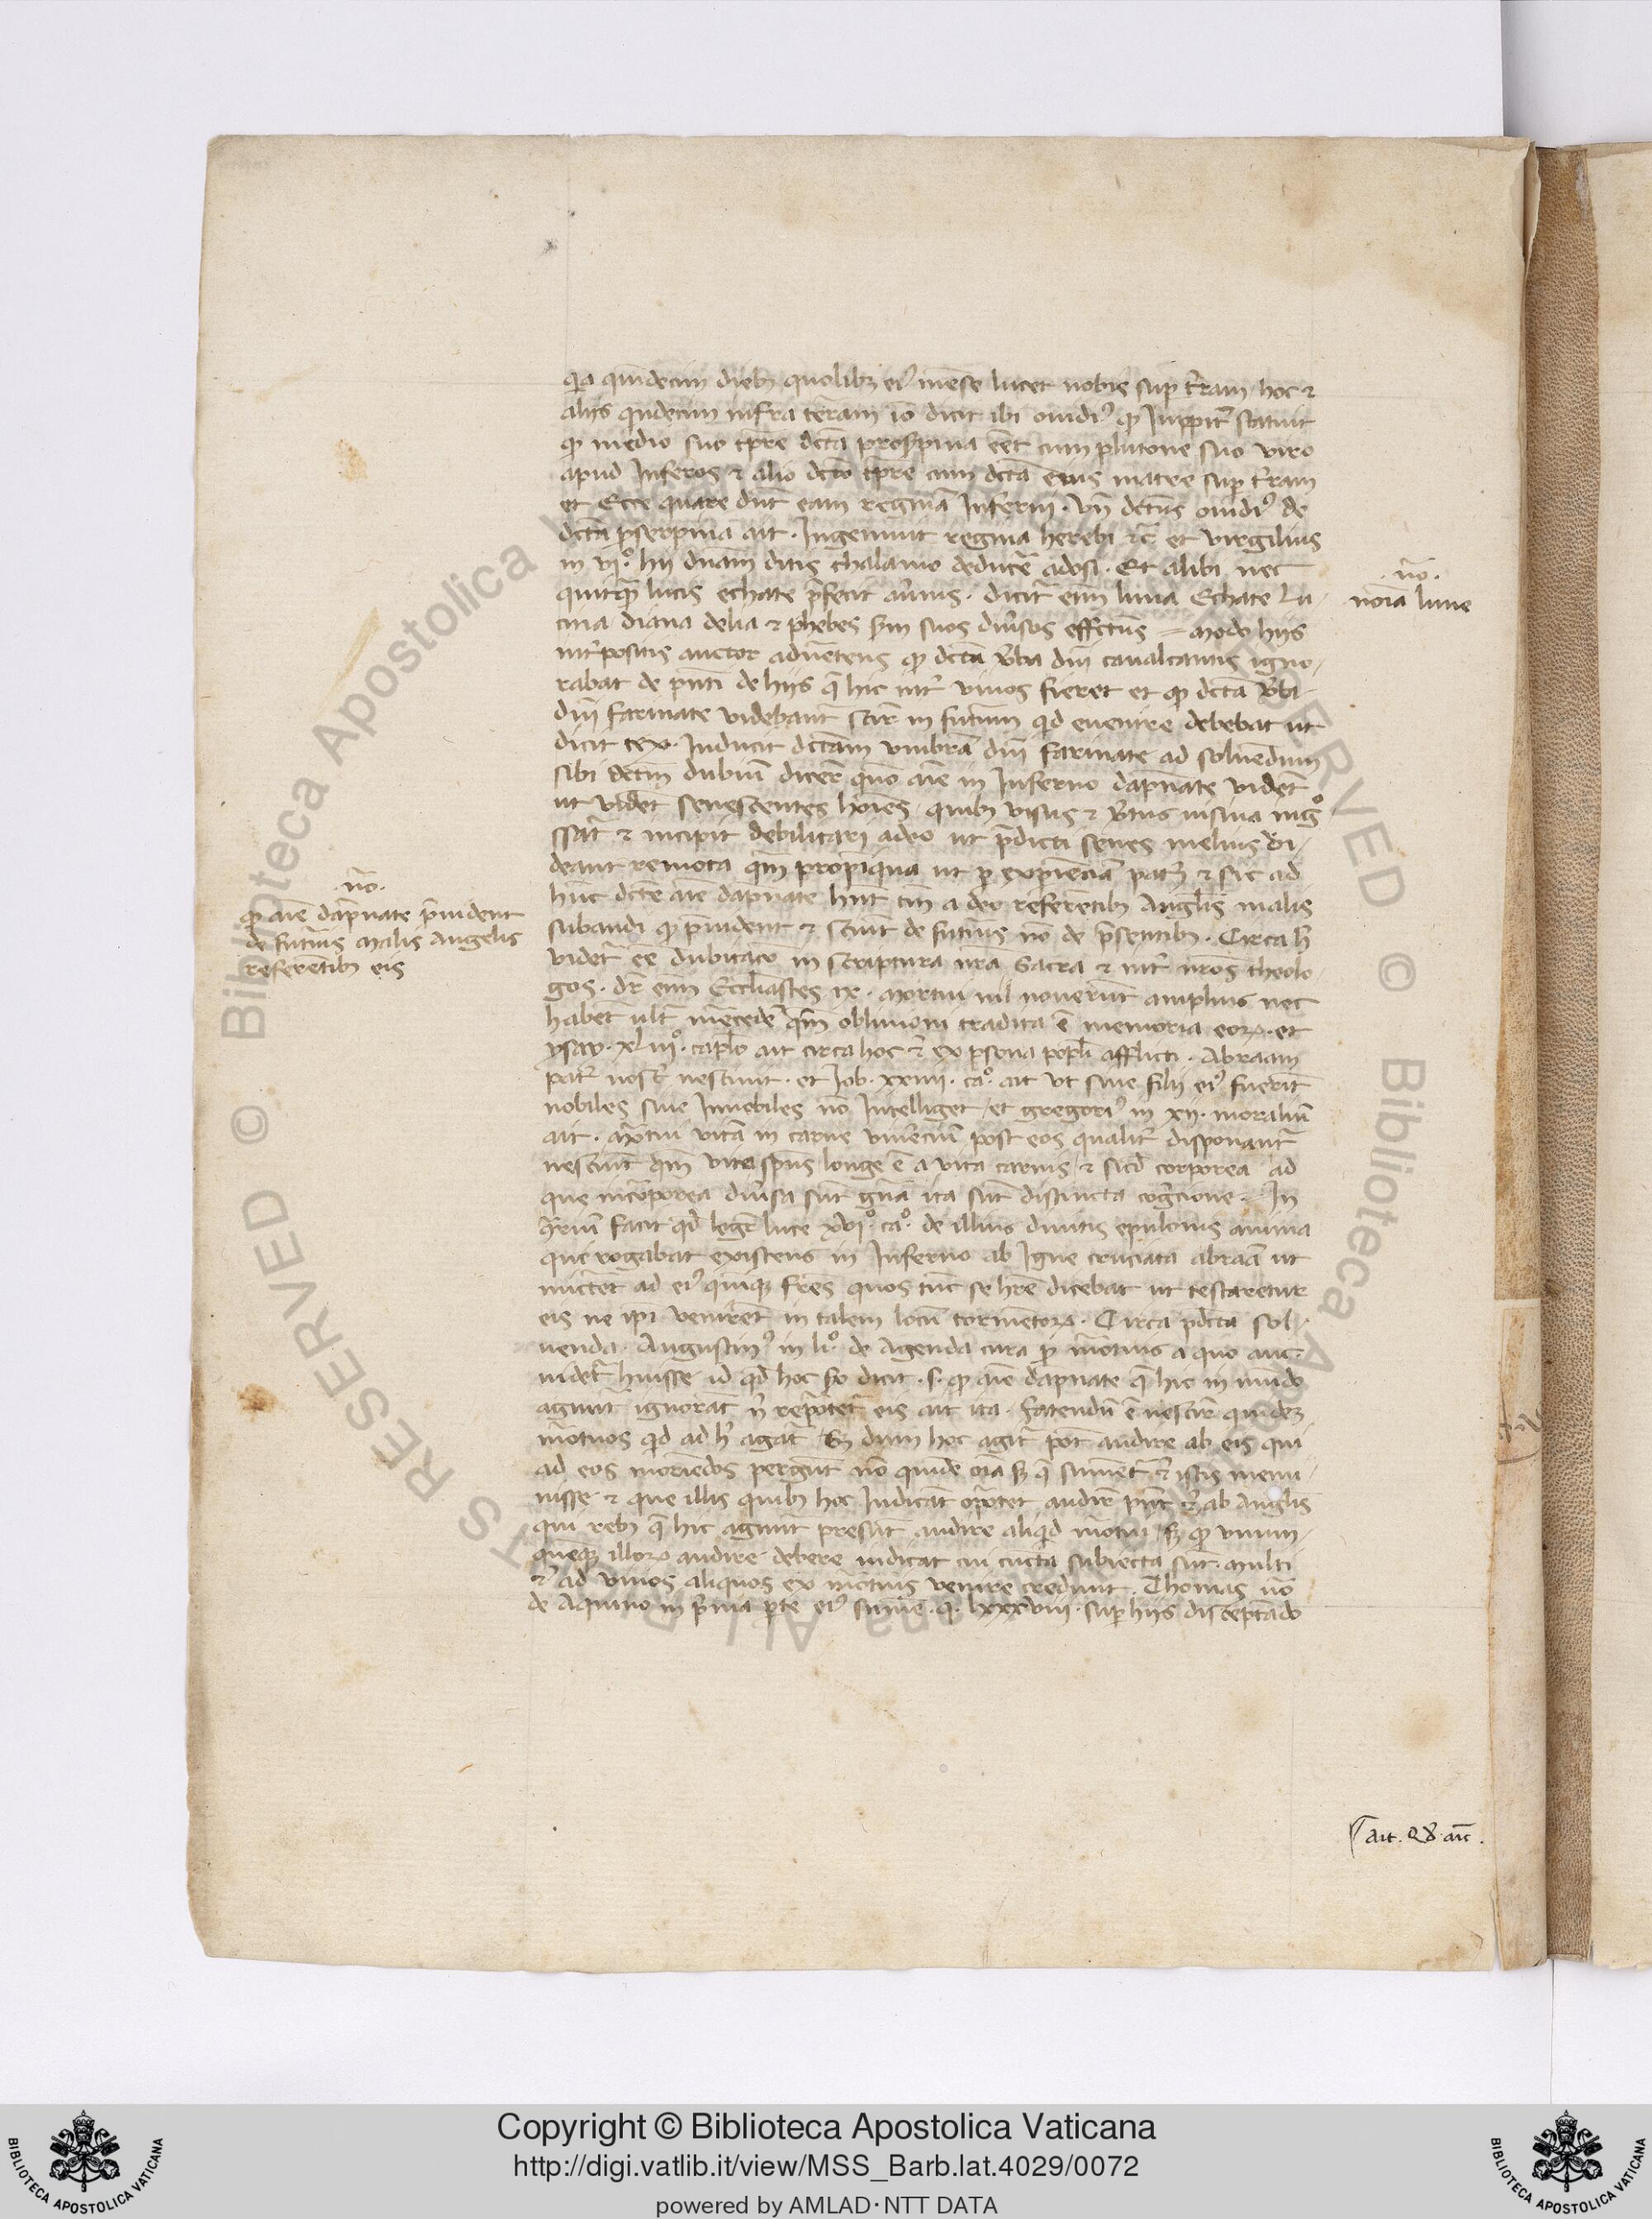 qa quindecim dieb; quolib; ei9 mense lucet nobis sup terram hoc et
aliis quidecim infra terram io dicit ibi ouidi9 qp Iuppiter statuit
qp medio suo tpre dcta proserpina eet cum plutone suo viro
apud Inferos et alio dcto tpre cum dcta eius matre sup terram
et Ecce quare dnt eam regina Inferni. Vn dctus ouidi9 de
dcta pserpina ait. Ingemuit regina herebi etc et virgilius
in vjo. hii dnam ditis thalamo deducere adorsi. Et alibi nec
quitquam lucis echate prefecit auernis. dicitur enim luna Echate Lu-
cina diana delia et phebes scdm suos diuersos effectus = modo hiis
interpositis auctor aduertens qp dcta vmbra dni caualcantis igno-
rabat de pnti de hiis que hic inter viuos fieret et qp dcta vmbra
dni farinate videbatur scire in futurum quid euenire debebat ut
dicit tex. Inducit dctam vmbram dni farinate ad soluendum
sibi dctum dubium dicere quo aie in Inferno dapnate vident
ut vident senescentes hoies quib; visus et virtus uisiua ingro
ssatur et incipit debilitari adeo ut predicti senes melius vi-
deant remota quam propinqua ut p expienciam patet et sic ad
hunc dcte aie dapnate hnt tm a deo referentib; Angelis malis
subaudi qp preuident et sciunt de futuris non de presentib;. Circa hoc
videtur esse dubitatio in scriptura nra sacra et inter nros theolo-
gos. dr enim Ecclesiastes ix. mortui nil nouerunt amplius nec
habent ultra mercedem quam obliuioni tradita e memoria eorum. et
ysaye. xliijo. caplo ait circa hoc et ex persona popli afflicti. Abraam
pater noster nesciuit. et Iob. xxiiij. cao. ait Vt siue filii ei9 fuerint
nobiles siue Innobiles non Intelliget et gregori9 in xij. moralium
ait. mortui vitam in carne viuencium post eos qualiter disponantur
nesciunt quam vita spus longe e a vita carnis et sicut corporea ad
que incorporea diuersa sunt gna ita sunt distincta cognicione. In
contrarium facit quod legitur luce xvjo. cao. de illius diuitis epulonis anima
que rogabat existens in Inferno ab Igne cruciata abraam ut
micteret ad ei9 quinque fres quos tunc se hre dicebat ut testaretur
eis ne ipi venirent in talem locum tormentorum. Circa pdcta sol-
uenda. Augustin9 in lio. de Agenda cura p mortuis a quo auc.
videtur hausisse id quod hoc sco dicit. s. qp aie dapnate que hic in mundo
agunt ignorant nisi reportetur eis ait ita. fatendum e nescire quidem
mortuos quid ad hc agatur sed dum hoc agitur post audire ab eis qui
ad eos moriendo pergunt non quidem oia sed que sinuntur et istis memi-
nisse et que illis quib; hoc Indicant oportet audire pnt et ab Anglis
qui reb; que hic aguntur presunt audire aliquid mortui sed qp vnum-
quemque illorum audire debere iudicat cui cuncta subiecta sunt. multi
et ad viuos aliquos ex mortuis venire credunt. Thomas uo
de Aquino in prima parte ei9 summe. q. lxxxviii. sup hiis disceptando
.no.
noia lune
.no.
qp aie dapnate preuident
de futuris malis Angelis
referentib; eis
ait.
Copyright © Biblioteca Apostolica Vaticana
http://digi.vatlib.it/view/MSS_Barb.lat.4029/0072
powered by AMLAD·NTT DATA